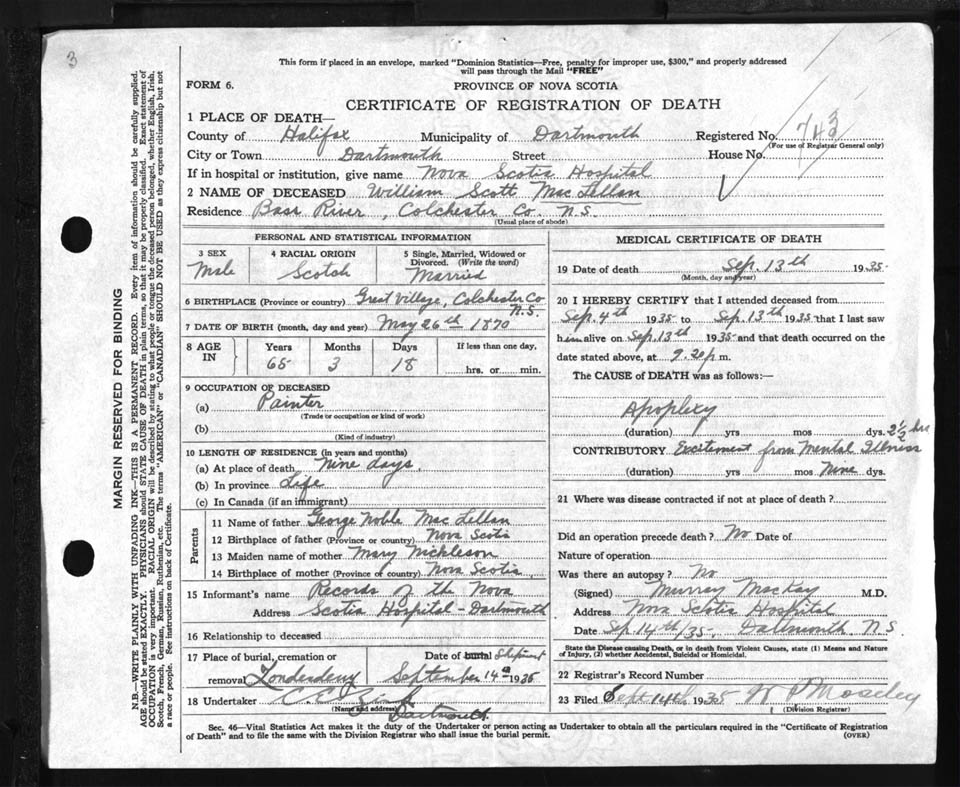 3
This form if placed in an envelope, marked "Dominion Statistics—Free, penalty for improper use, $300," and properly addressed
will pass through the Mail "FREE"
FORM 6.
PROVINCE OF NOVA SCOTIA
CERTIFICATE OF REGISTRATION OF DEATH
1 PLACE OF DEATH—
County of Halifax Municipality of Dartmouth Registered No. 743
(For use of Registrar General only)
City or Town Dartmouth Street House No.
If in hospital or institution, give name Nova Scotia Hospital
2 NAME OF DECEASED William Scott Mac Lellan
Residence Bass River, Colchester Co. N.S.
(Usual place of abode)
PERSONAL AND STATISTICAL INFORMATION
3 SEX 4 RACIAL ORIGIN 5 Single, Married, Widowed or
Divorced. (Write the word)
Male Scotch Married
6 BIRTHPLACE (Province or country) Great Village, Colchester Co
N.S.
7 DATE OF BIRTH (month, day and year) May 26th 1870
8 AGE IN Years Months Days If less than one day,
65 3 18 hrs. or min.
9 OCCUPATION OF DECEASED
(a) Painter
(Trade or occupation or kind of work)
(b)
(Kind of industry)
10 LENGTH OF RESIDENCE (in years and months)
(a) At place of death nine days
(b) In province Life
(c) In Canada (if an immigrant)
Parents
11 Name of father George Noble Mac Lellan
12 Birthplace of father (Province or country) Nova Scotia
13 Maiden name of mother Mary Nickleson
14 Birthplace of mother (Province or country) Nova Scotia
15 Informant's name Records of the Nova
Address Scotia Hospital - Dartmouth
16 Relationship to deceased
17 Place of burial, cremation or Date of burial Shipment
removal Londonderry September 14th 1935
18 Undertaker C. E.
(Name and address)
Dartmouth
MEDICAL CERTIFICATE OF DEATH
19 Date of death Sep. 13th 1935
(Month, day and year)
20 I HEREBY CERTIFY that I attended deceased from
Sep. 4th 1935 to Sep. 13th 1935 that I last saw
him alive on Sep. 13th 1935 and that death occurred on the
date stated above, at 9.20 p m.
The CAUSE of DEATH was as follows:—
Apoplexy
(duration) yrs mos dys. 2½ hrs
CONTRIBUTORY Excitement from Mental Illness
(duration) yrs mos Nine dys.
21 Where was disease contracted if not at place of death?
Did an operation precede death? No Date of
Nature of operation
Was there an autopsy? No
(Signed) Murray MacKay M.D.
Address Nova Scotia Hospital
Date Sep. 14th/35. Dartmouth N.S.
State the Disease causing Death, or in death from Violent Causes, state (1) Means and Nature
of Injury, (2) whether Accidental, Suicidal or Homicidal.
22 Registrar's Record Number
23 Filed Sept 14th 1935 Moseley
(Division Registrar)
Sec. 46—Vital Statistics Act makes it the duty of the Undertaker or person acting as Undertaker to obtain all the particulars required in the "Certificate of Registration
of Death" and to file the same with the Division Registrar who shall issue the burial permit. (OVER)
MARGIN RESERVED FOR BINDING
N.B.—WRITE PLAINLY WITH UNFADING INK—THIS IS A PERMANENT RECORD. Every item of information should be carefully supplied.
AGE should be stated EXACTLY. PHYSICIANS should STATE CAUSE OF DEATH in plain terms, so that it may be properly classified. Exact statement of
OCCUPATION is very important. RACIAL ORIGIN will be described by stating to what people or tongue the deceased person belonged, whether English, Irish,
Scotch, French, German, Russian, Ruthenian, etc. The terms "AMERICAN" or "CANADIAN" SHOULD NOT BE USED as they express citizenship but not
a race or people. See instructions on back of Certificate.